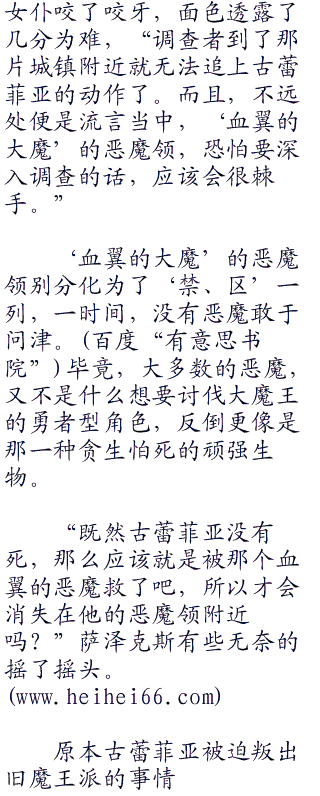 女仆咬了咬牙，面色透露了
几分为难，“调查者到了那
片城镇附近就无法追上古蕾
菲亚的动作了。而且，不远
处便是流言当中，‘血翼的
大魔’的恶魔领，恐怕要深
入调查的话，应该会很棘
手。”
‘血翼的大魔’的恶魔
领别分化为了‘禁、区’一
列，一时间，没有恶魔敢于
问津。(百度“有意思书
院”)毕竟，大多数的恶魔，
又不是什么想要讨伐大魔王
的勇者型角色，反倒更像是
那一种贪生怕死的顽强生
物。
“既然古蕾菲亚没有
死，那么应该就是被那个血
翼的恶魔救了吧，所以才会
消失在他的恶魔领附近
吗？”萨泽克斯有些无奈的
摇了摇头。
(www.heihei66.com)
原本古蕾菲亚被迫叛出
旧魔王派的事情